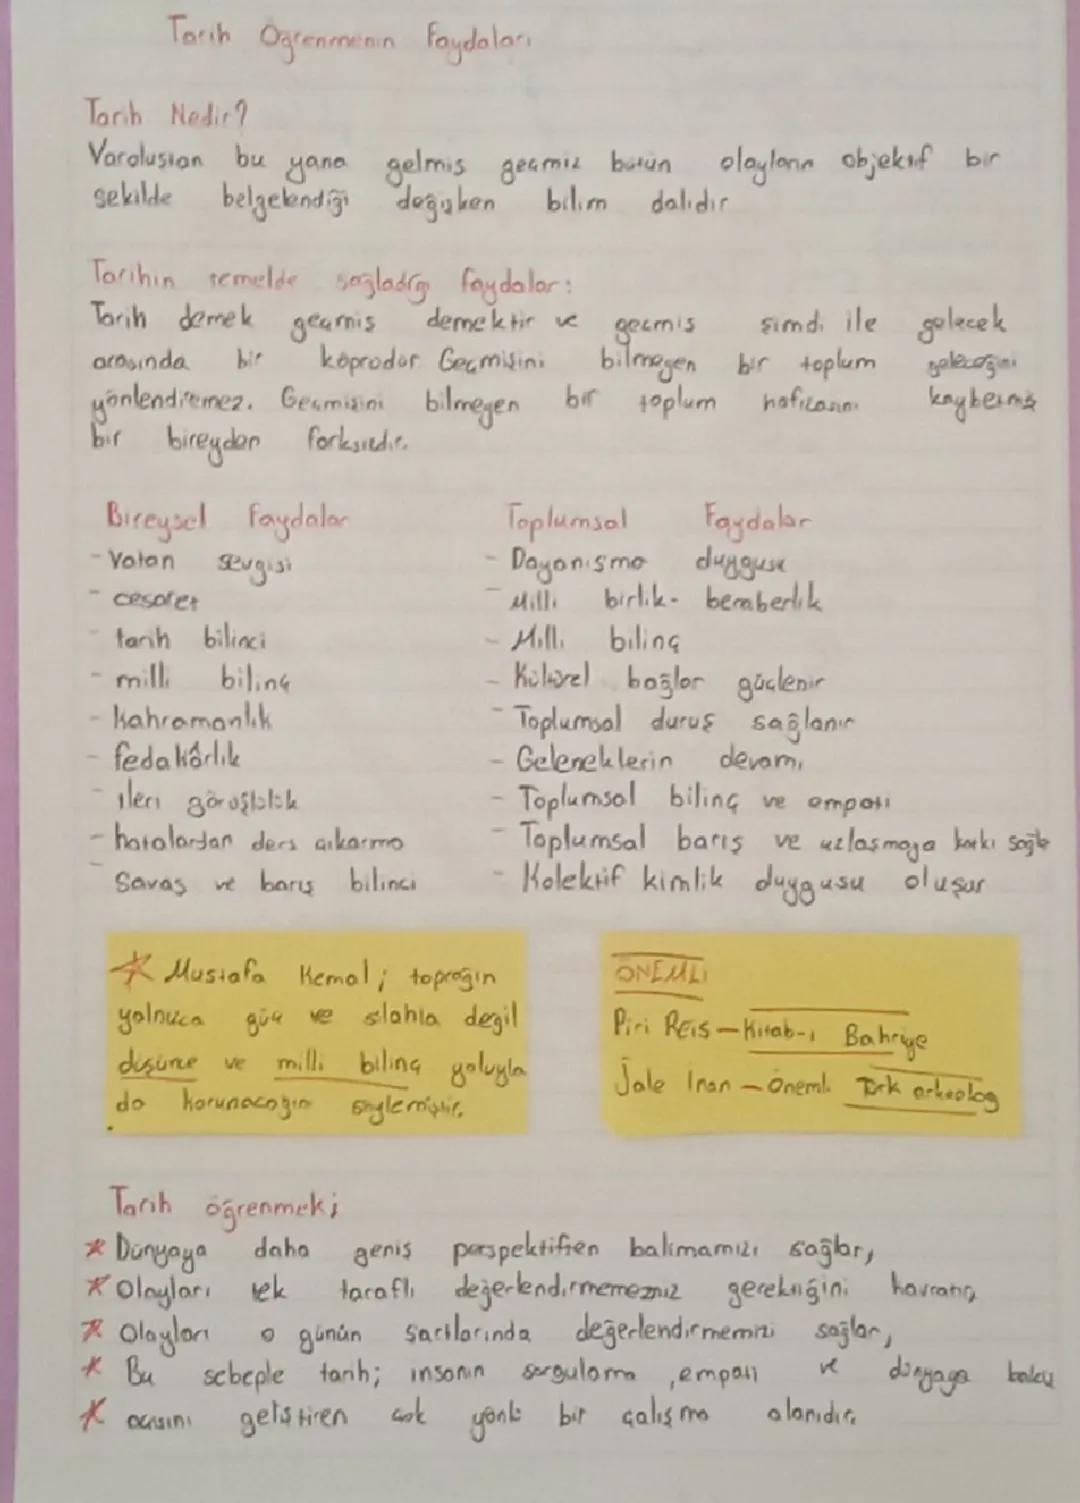 Tarih Öğrenmenin Faydaları
Tarih Nedir?
Varoluştan bu yana gelmiş geçmiş bütün olayların objektif bir
şekilde belgelendiği değişken bilim dalıdır
Tarihin temelde sağladığı faydalar:
Tarih demek geçmiş demektir ve geçmiş şimdi ile gelecek
arasında bir köprüdür Geçmişini bilmeyen bir toplum geleceğini
yönlendiremez. Geçmişini bilmeyen bir toplum hafızasını kaybetmiş
bir bireyden farksızdır.
Bireysel Faydalar
- Vatan sevgisi
- cesaret
- tarih bilinci
- milli bilinç
- Kahramanlık
- fedakârlık
- ileri görüşlülük
- hatalardan ders çıkarma
- Savaş ve barış bilinci
Toplumsal Faydalar
- Dayanışma duygusu
- Milli birlik- beraberlik
- Milli bilinç
- Kültürel bağlar güçlenir
- Toplumsal duruş sağlanır
- Geleneklerin devamı
- Toplumsal bilinç ve empati
- Toplumsal barış ve uzlaşmaya katkı sağlar
- Kolektif kimlik duygusu oluşur
* Mustafa Kemal; toprağın
yalnızca güç ve silahla değil
düşünce ve milli bilinç yoluyla
da korunacağını söylemiştir.
ÖNEMLİ
Piri Reis - Kitab-ı Bahriye
Jale İnan - Önemli Türk arkeolog
Tarih öğrenmek;
* Dünyaya daha geniş perspektiften bakmamızı sağlar,
* Olayları tek taraflı değerlendirmememiz gerektiğini kavratır,
* Olayları o günün şartlarında değerlendirmemizi sağlar,
* Bu sebeple tarih; insanın sorgulama, empati ve dünyaya bakış
* açısını geliştiren çok yönlü bir çalışma alanıdır.